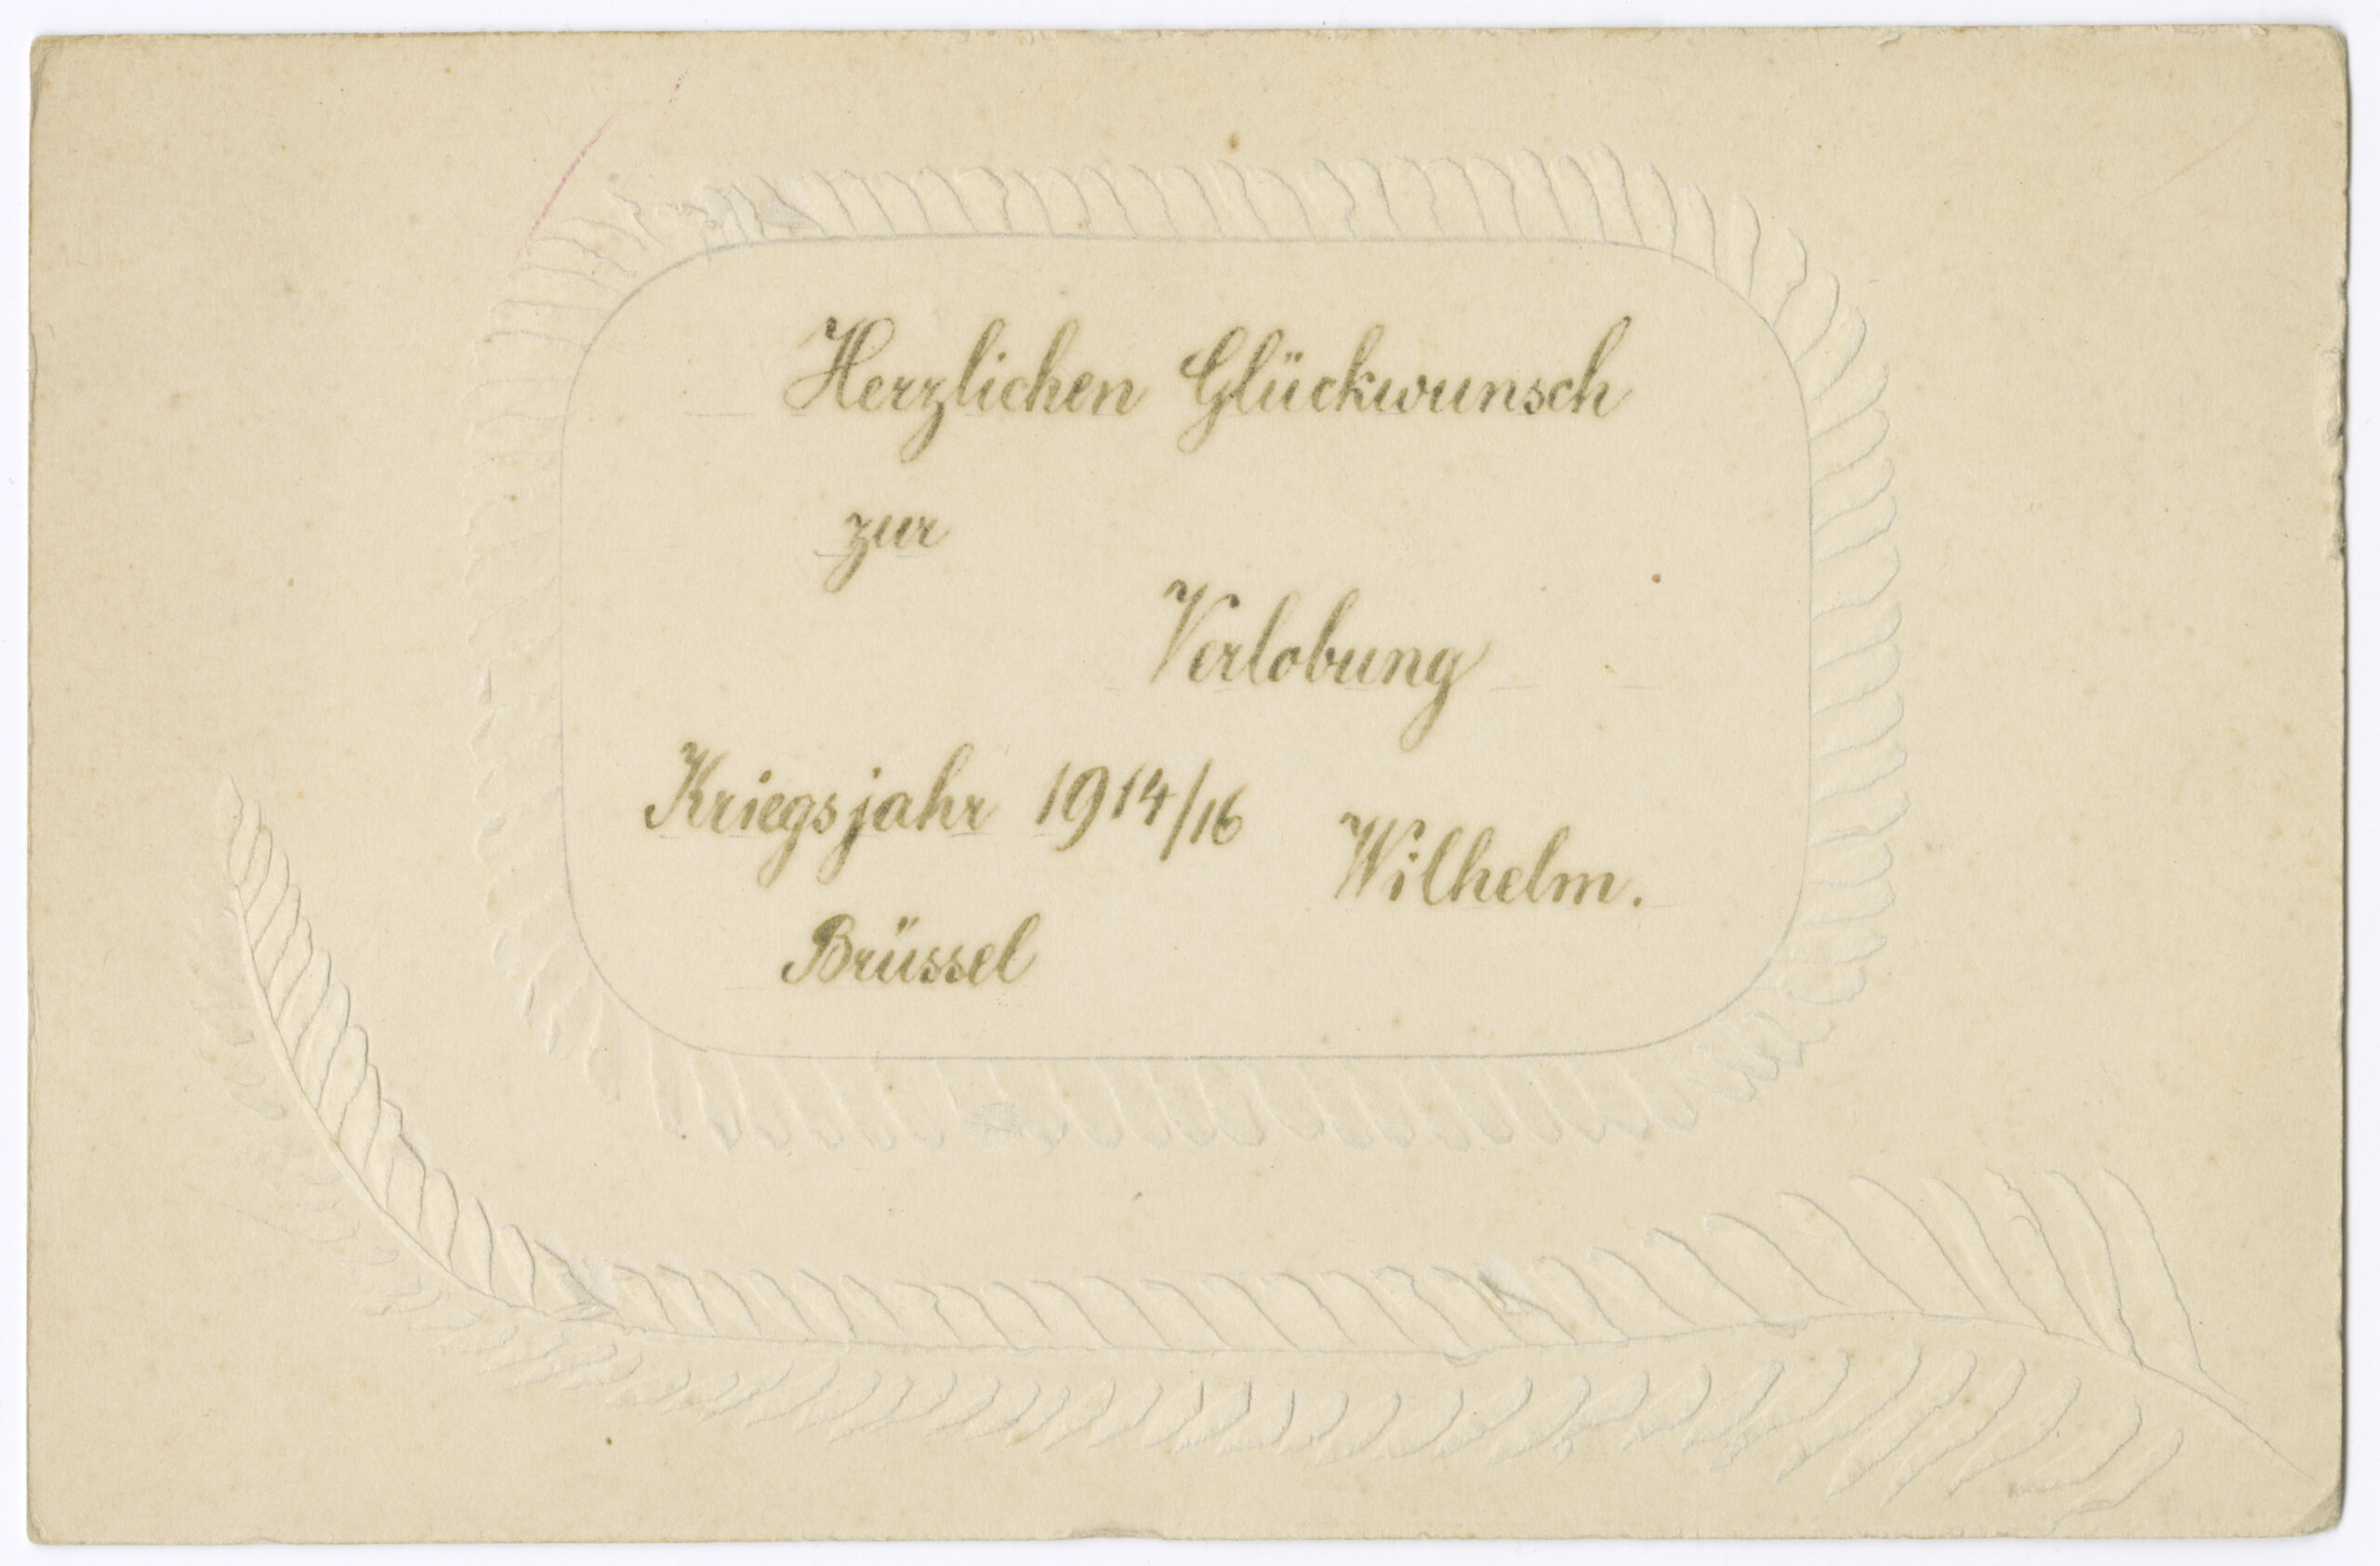 Herzlichen Glückwunsch
zur
Verlobung
Kriegsjahr 1914/16
Wilhelm.
Brüssel